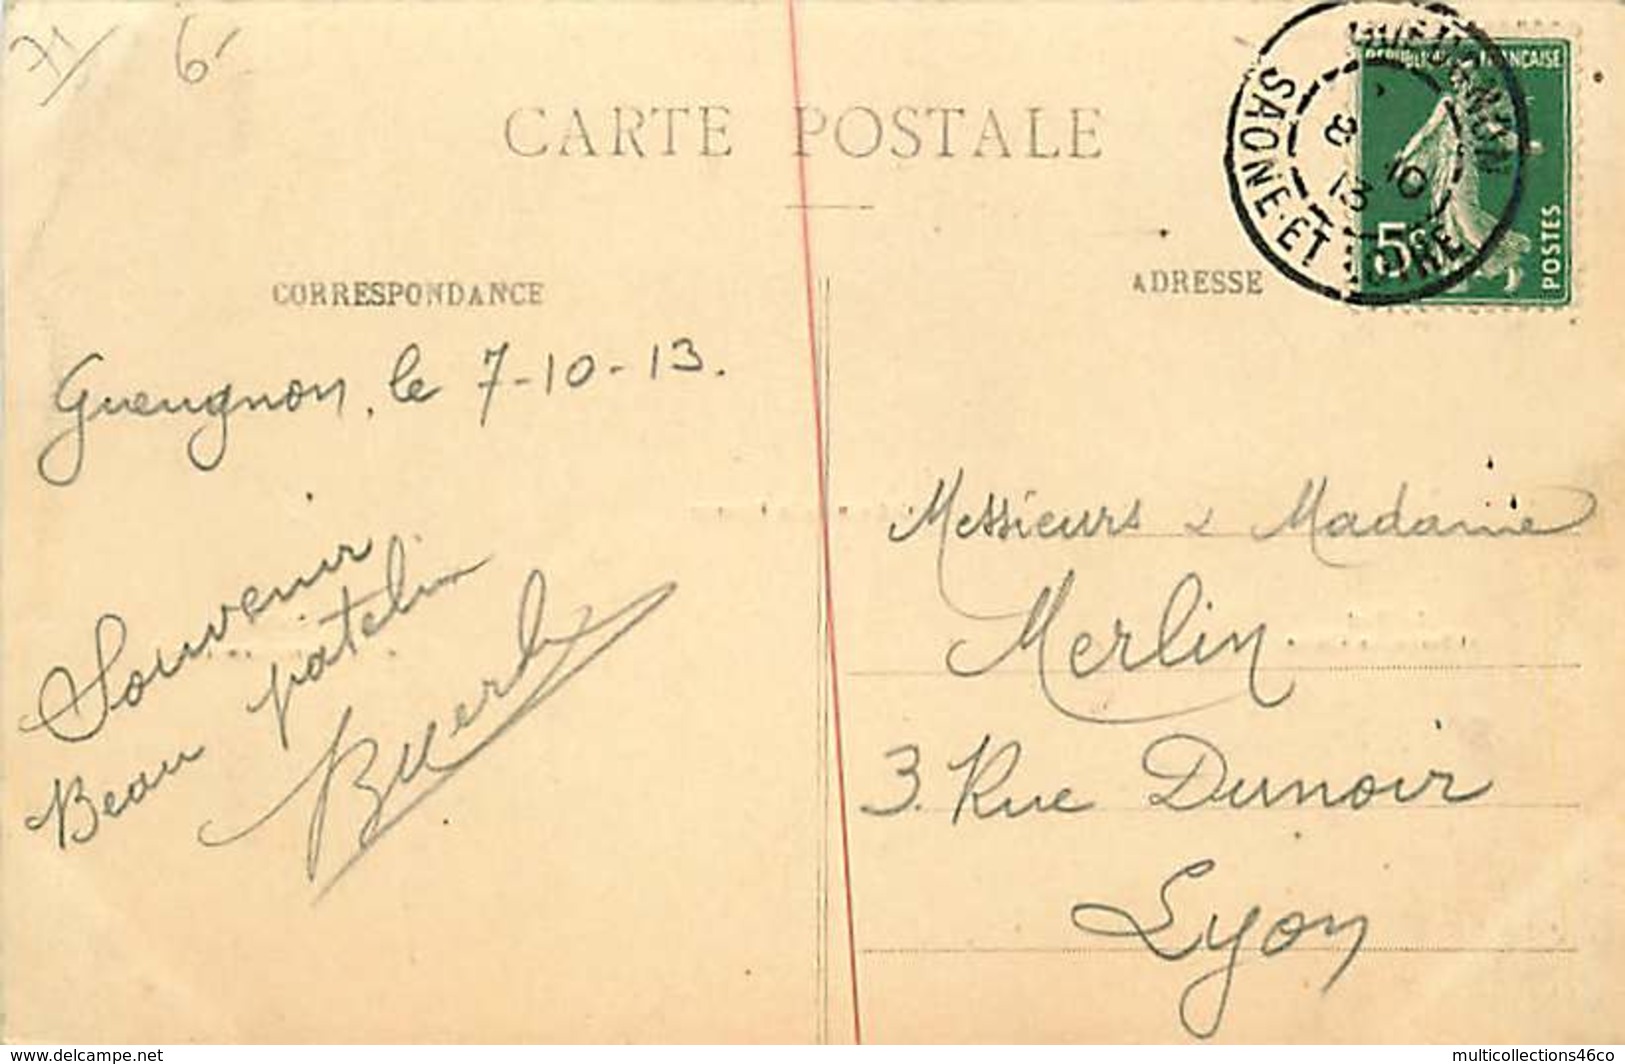 71
6-
CARTE POSTALE
GUEUGNON
SAONE-ET-LOIRE
8
10
13
REPUBLIQUE FRANÇAISE
5c
POSTES
CORRESPONDANCE
ADRESSE
Gueugnon, le 7-10-13.
Souvenir
Beau patelin
Messieurs & Madame
Merlin
3. Rue Dunoir
Lyon
www.delcampe.net
multicollections46co